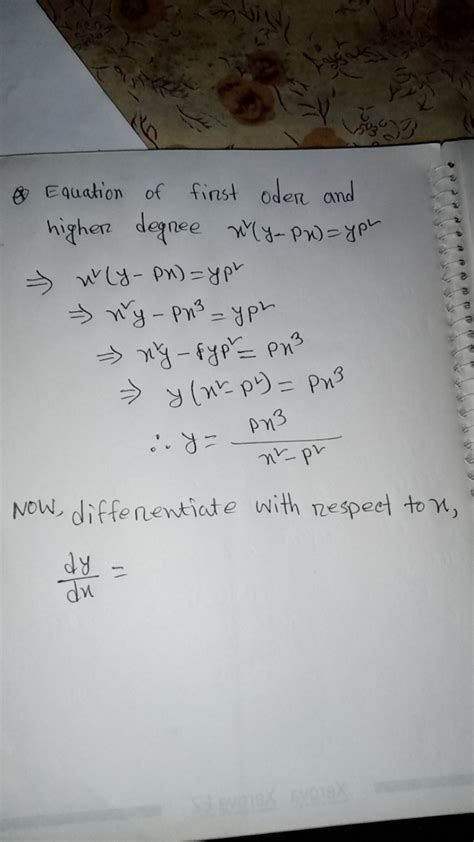 ⊗ Equation of first oder and
higher degree x²(y-px)=yp²
⇒ x²(y-px)=yp²
⇒ x²y-px³=yp²
⇒ x²y-yp²=px³
⇒ y(x²-p²)=px³
∴ y = px³/(x²-p²)
NOW, differentiate with respect to x,
dy/dx =